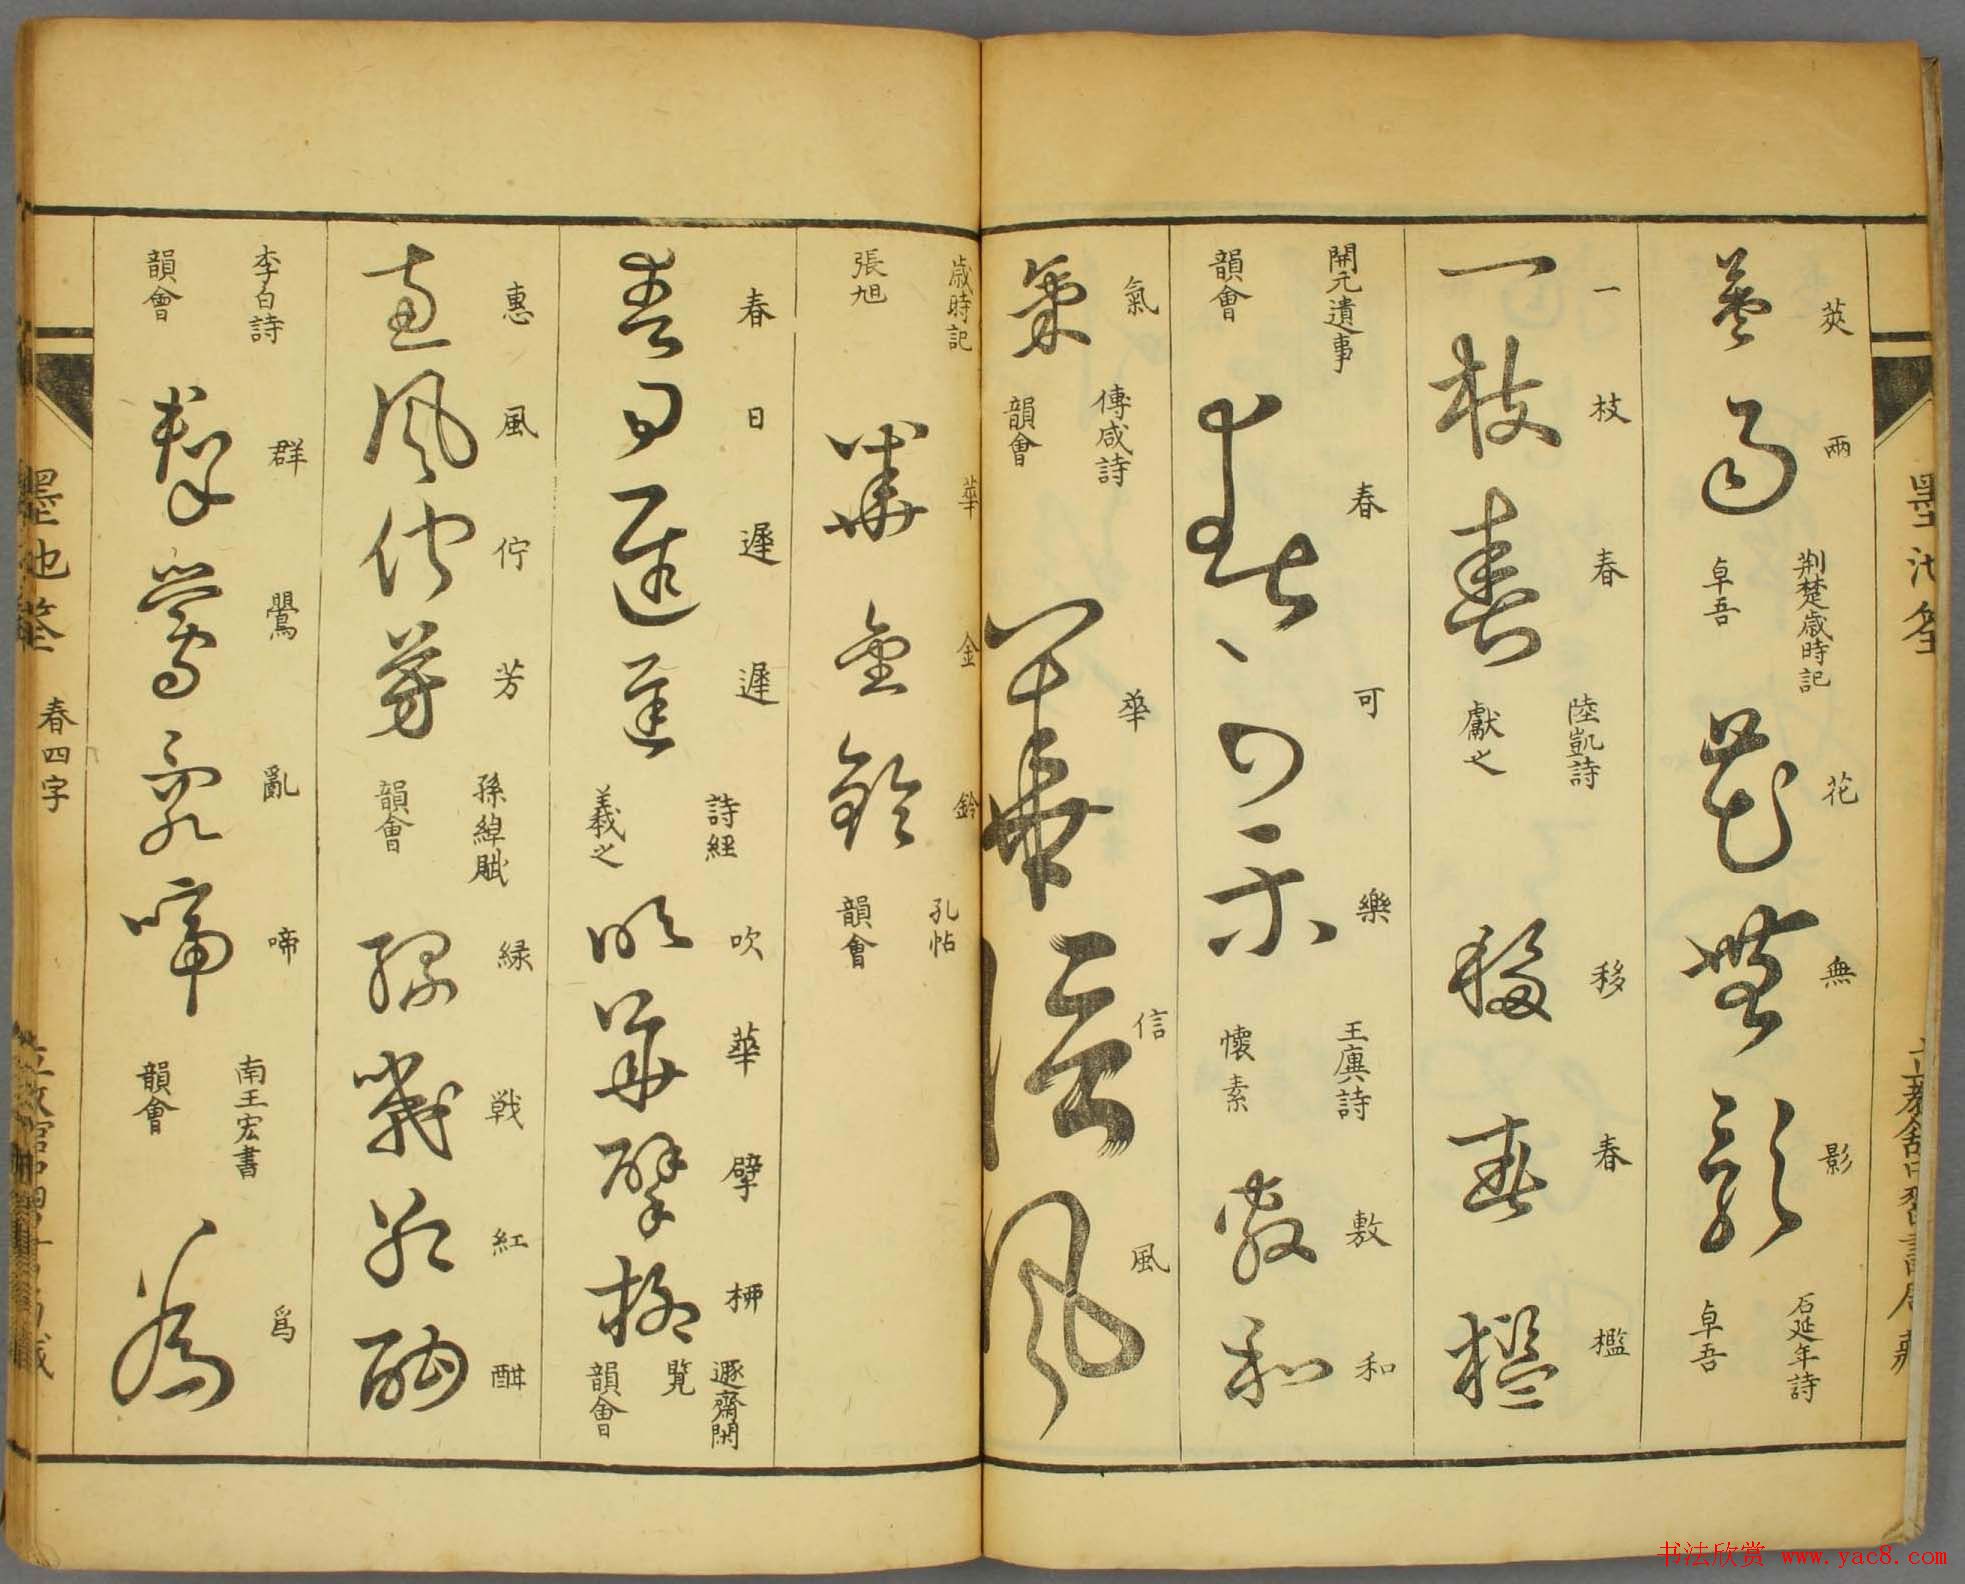 莢雨
荆楚歲時記
卓吾
花無影
石延年詩
卓吾
一枝春
陸凱詩
獻之
移春檻
開元遺事
韻會
春可樂
王廙詩
懷素
敷和
氣
傅咸詩
韻會
華信風
歲時記
張旭
華金鈴
孔帖
韻會
春日遲遲
詩經
羲之
吹華擘柳
遯齋閑覽
韻會
惠風佇芳
孫綽賦
韻會
緑戦紅酣
李白詩
韻會
群鶯亂啼
南王宏書
韻會
爲
墨池
春四字
書法欣賞 www.yac8.com